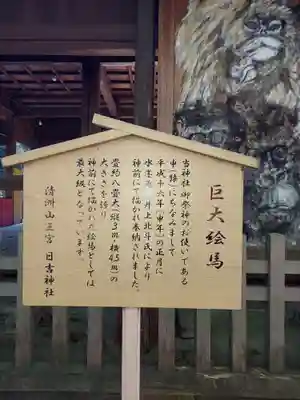 巨大絵馬
当神社御祭神のお使いである
申(猿)にちなみまして
平成十六年(申年)の正月に
水墨画 井上北斗氏により
神前にて描かれ奉納されました。
畳約八畳大(縦3m・横4.5m)の
大きさを誇り
神前にて描かれた絵馬としては
最大級となっています。
清洲山王宮 日吉神社